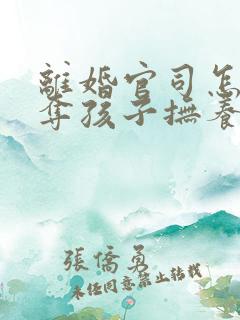 離婚官司怎
奪孩子撫養
張僑勇
未经同意禁止转载